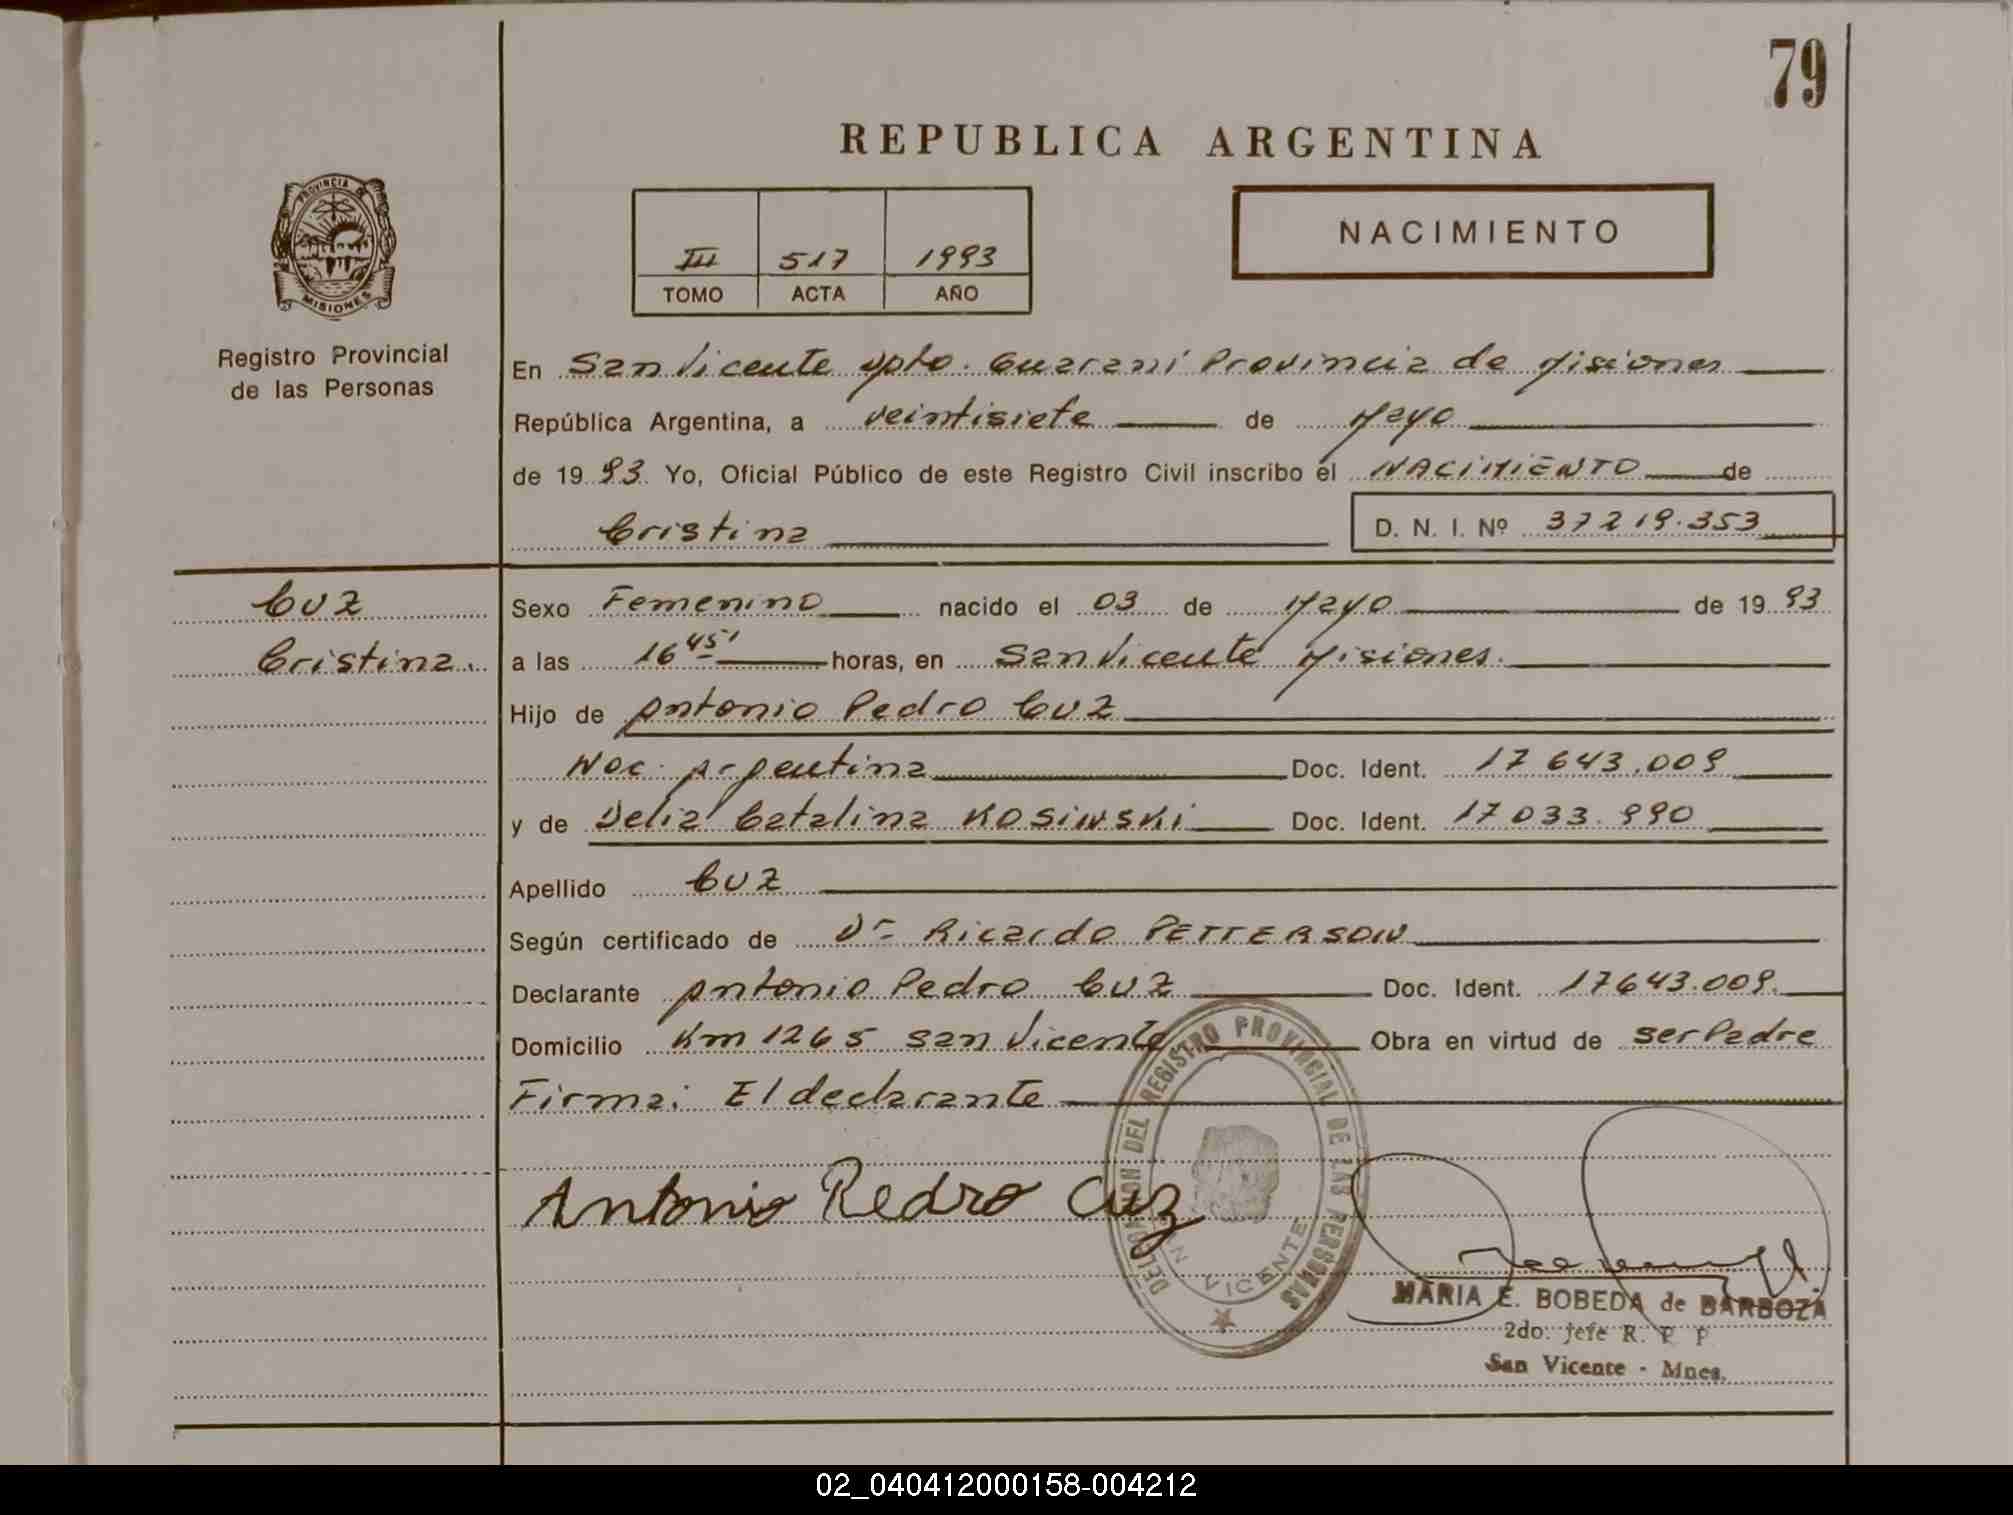 79
REPUBLICA ARGENTINA
PROVINCIA DE
MISIONES
III 517 1993
TOMO ACTA AÑO
NACIMIENTO
Registro Provincial
de las Personas
En San Vicente Dpto. Guaraní Provincia de Misiones
República Argentina, a veintisiete de Mayo
de 1993. Yo, Oficial Público de este Registro Civil inscribo el NACIMIENTO de
Cristina D. N. I. Nº 37219.353
CUZ
Cristina.
Sexo Femenino nacido el 03 de Mayo de 1993
a las 16 45' horas, en San Vicente Misiones.
Hijo de Antonio Pedro CUZ
Nac. Argentina Doc. Ident. 17 643.009
y de Delia Catalina KOSINSKI Doc. Ident. 17 033.990
Apellido CUZ
Según certificado de Dr Ricardo PETTERSON
Declarante Antonio Pedro CUZ Doc. Ident. 17643.009.
Domicilio Km 1265 San Vicente Obra en virtud de ser Padre
Firma: El declarante
Antonio Pedro Cuz
DELEGACION DEL REGISTRO PROVINCIAL DE LAS PERSONAS
SAN VICENTE
MARIA E. BOBEDA de BARBOZA
2do. Jefe R. P. P.
San Vicente - Mnes.
02_040412000158-004212